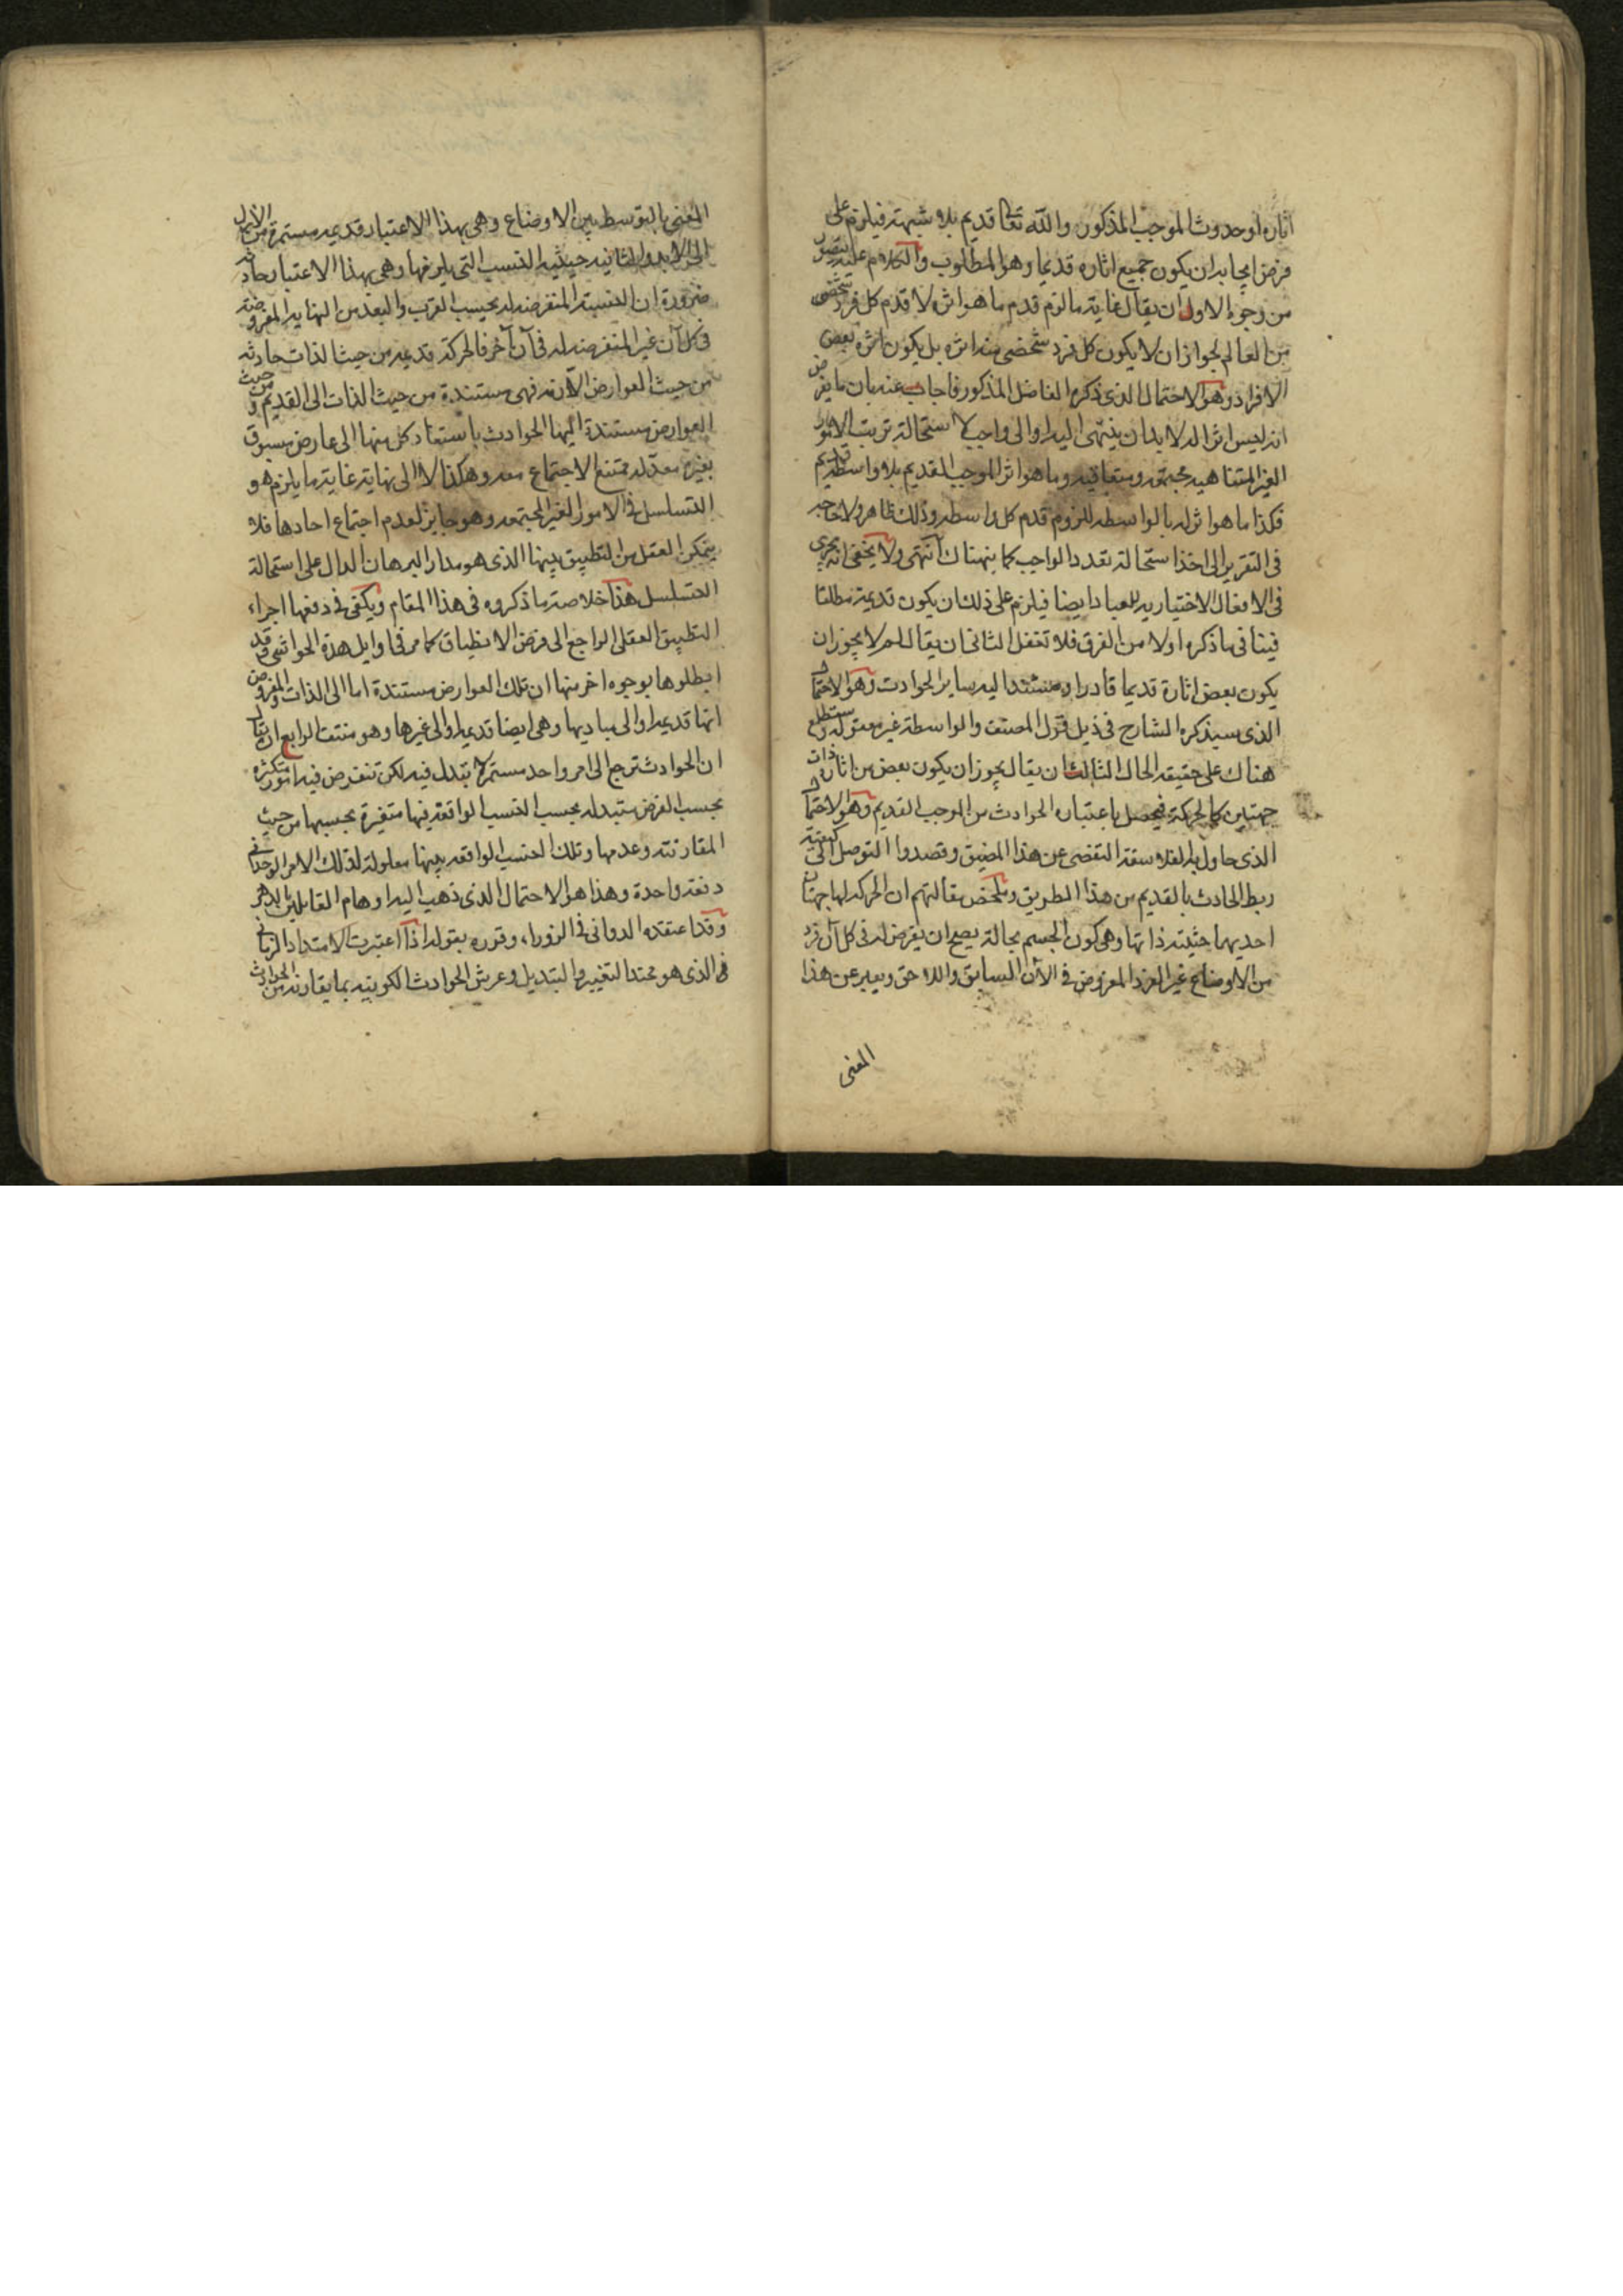 اثاره او حدوث الموجب المذكور والله تعالى قديم بلا شبهة فيلزم على
فرض ايجابه ان يكون جميع اثاره قديما وهو المطلوب والكلام عليه يتصور
من وجوه الاول ان يقال غاية ما لزم قدم ما هو اثره لا قدم كل فرد شخصي
من العالم لجواز ان لا يكون كل فرد شخصي منه اثره بل يكون اثره بعض
الافراد وهو الاحتمال الذي ذكره الفاضل المذكور فاجاب عنه بان ما يفرض
انه ليس اثرا له لا بد ان ينتهي اليه او الى واجب لاستحالة ترتب الامور
الغير المتناهية مجتمعة ومتعاقبة وما هو اثر الموجب القديم بلا واسطة قديم
فكذا ما هو اثر له بالواسطة للزوم قدم كل واسطة وذلك ظاهر ولا حاجة
في التقرير الى اخذ استحالة تعدد الواجب كما بنهناك انتهى ولا يخفى انه يجري
في الافعال الاختيارية للعباد ايضا فيلزم على ذلك ان يكون قديمة مطلقا
فينافي ما ذكره اولا من الفرق فلا تغفل الثاني ان يقال لم لا يجوز ان
يكون بعض اثاره قديما قادرا ومستندا اليه ساير الحوادث وهو الاحتمال
الذي سيذكره الشارح في ذيل قول المصنف والواسطة غير معقولة وستطلع
هناك على حقيقة الحال الثالث ان يقال يجوز ان يكون بعض من اثاره ذات
جهتين كالحركة فيحصل باعتباره الحوادث من الموجب القديم وهو الاحتمال
الذي حاول به الفلاسفة التفصى عن هذا المضيق وقصدوا التوصل الى كيفية
ربط الحادث بالقديم من هذا الطريق وملخص مقالتهم ان الحركة لها جهتان
احديهما حيثية ذاتها وهي كون الجسم بحالة يصح ان يفرض له في كل آن فرد
من الاوضاع غير الفرد المفروض في الآن السابق واللاحق ويعبر عن هذا
المعنى
المعنى بالتوسط بين الاوضاع وهي بهذا الاعتبار قديمة مستمرة من الازل
الى الابد والثانية حيثية النسب التي يلزمها وهي بهذا الاعتبار حادثة
ضرورة ان النسبة المتفرضة له بحسب القرب والبعد من النهاية المفروضة
في كل آن غير المتفرضة له في آن آخر فالحركة قديمة من حيث الذات حادثة
من حيث العوارض اللازمة فهي مستندة من حيث الذات الى القديم ومن حيث
العوارض مستندة اليها الحوادث باستعداد كل منها الى عارض مسبوق
بغيره معد له ممتنع الاجتماع معه وهكذا لا الى نهاية غاية ما يلزم هو
التسلسل في الامور الغير المجتمعة وهو جايز لعدم اجتماع احادها فلا
يتمكن العقل من التطبيق بينها الذي هو مدار البرهان الدال على استحالة
التسلسل هذا خلاصة ما ذكروه في هذا المقام ويكفي في دفعها اجراء
التطبيق العقلي الراجع الى فرض الانطباق كما مر في اوايل هذه الحواشي وقد
ابطلوها بوجوه اخر منها ان تلك العوارض مستندة اما الى الذات والمفروض
انها قديمة او الى مباديها وهي ايضا قديمة او الى غيرها وهو منتف الرابع ان يقال
ان الحوادث ترجع الى امر واحد مستمر لا تبدل فيه لكن تنفرض فيه امور متكثرة
بحسب الفرض متبدلة بحسب النسب الواقعة فيها متغيرة بحسبها من حيث
المقارنة وعدمها وتلك النسب الواقعة بينها معلولة لذلك الامر الوحداني
دفعة واحدة وهذا هو الاحتمال الذي ذهب اليه اوهام القائلين بالدهر
وقد اعتقده الدواني في الزوراء وقرره بقوله اذا اعتبرت الامتداد الزماني
الذي هو محتد التغيير والتبديل وعرش الحوادث الكونية بما يقارنه من الحوادث